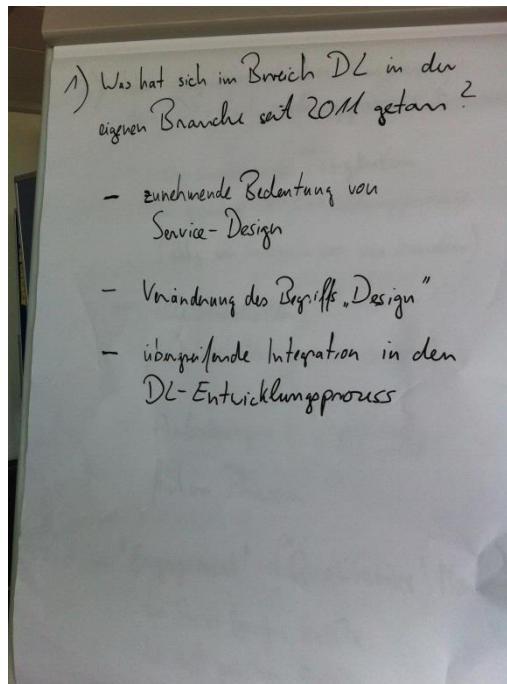 1) Was hat sich im Bereich DL in der
eigenen Branche seit 2011 getan?
- zunehmende Bedeutung von
Service-Design
- Veränderung des Begriffs „Design"
- übergreifende Integration in den
DL-Entwicklungsprozess